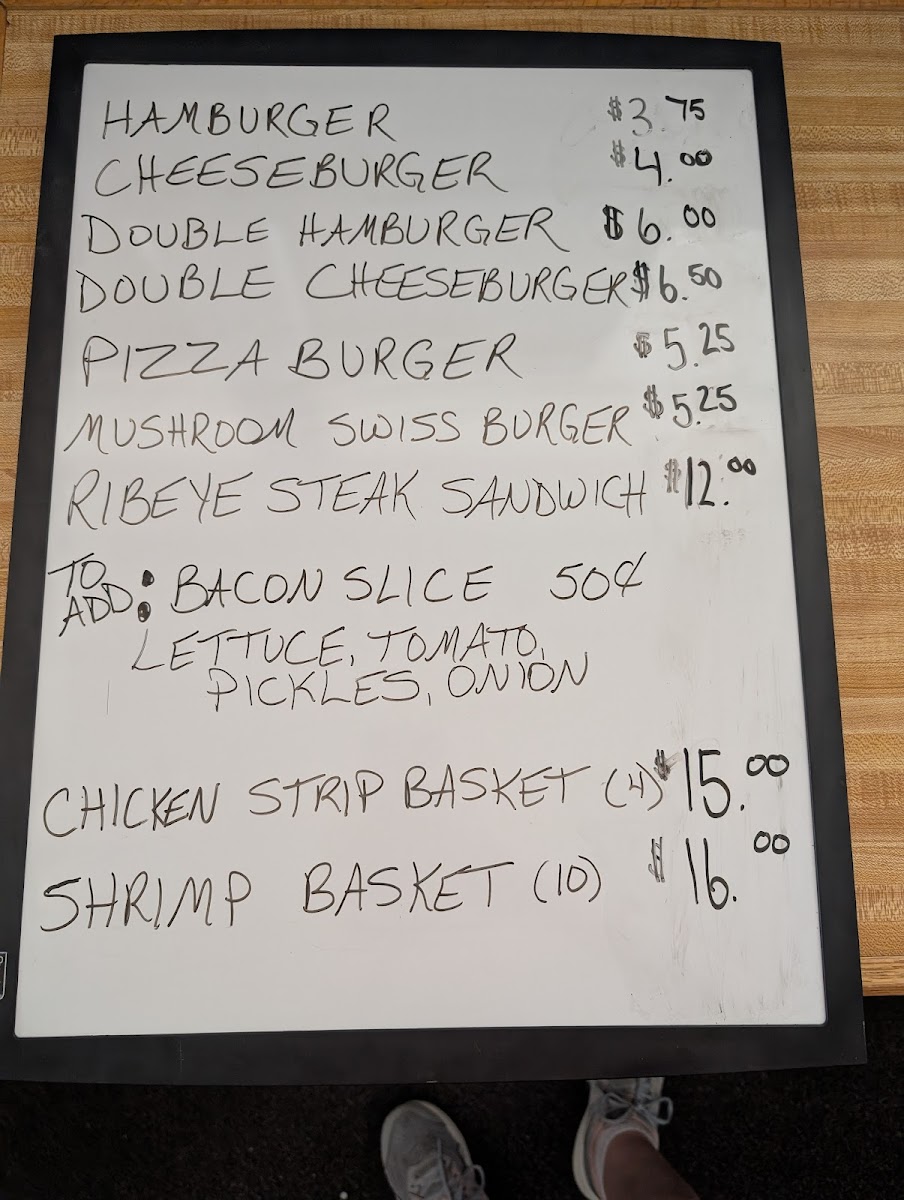 HAMBURGER $3.75
CHEESEBURGER $4.00
DOUBLE HAMBURGER $6.00
DOUBLE CHEESEBURGER $6.50
PIZZA BURGER $5.25
MUSHROOM SWISS BURGER $5.25
RIBEYE STEAK SANDWICH $12.00
TO ADD: BACON SLICE 50¢
LETTUCE, TOMATO,
PICKLES, ONION
CHICKEN STRIP BASKET (4) $15.00
SHRIMP BASKET (10) $16.00